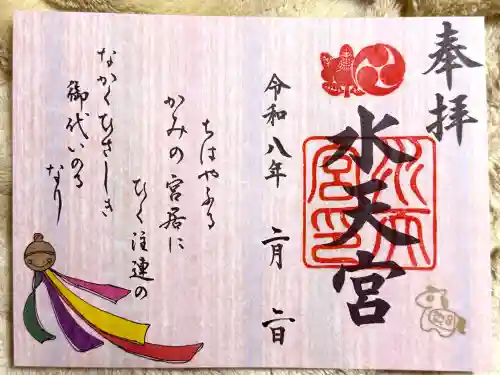 奉拝
水天宮
令和八年 二月 二日
ちはやふる
かみの宮居に
ひく注連の
なかくひさしき
御代いのる
なり